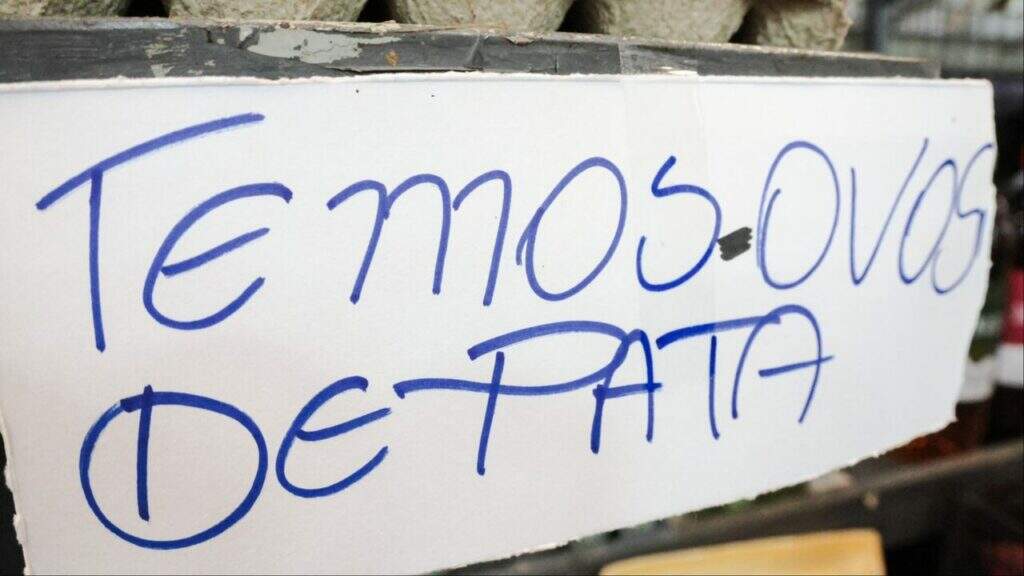 TEMOS-OVOS
DE PATA